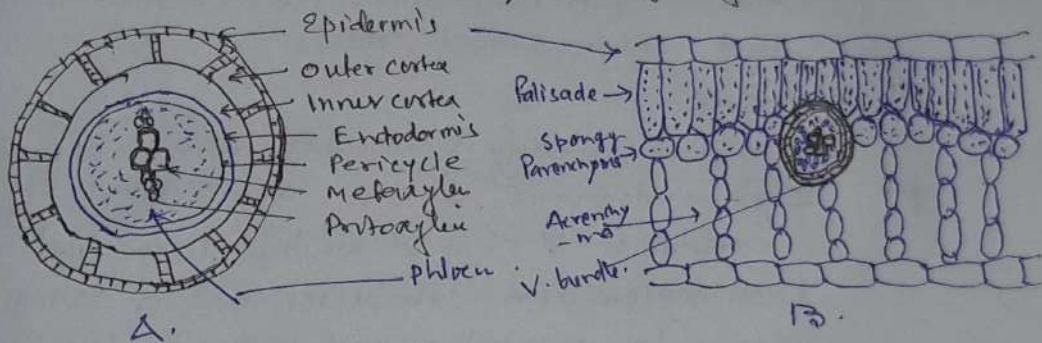 Epidermis
Outer cortex
Inner cortex
Endodermis
Pericycle
Metaxylem
Protoxylem
Phloem
A.
Palisade
Spongy
Parenchyma
Aerenchy
-ma
V. bundle.
B.